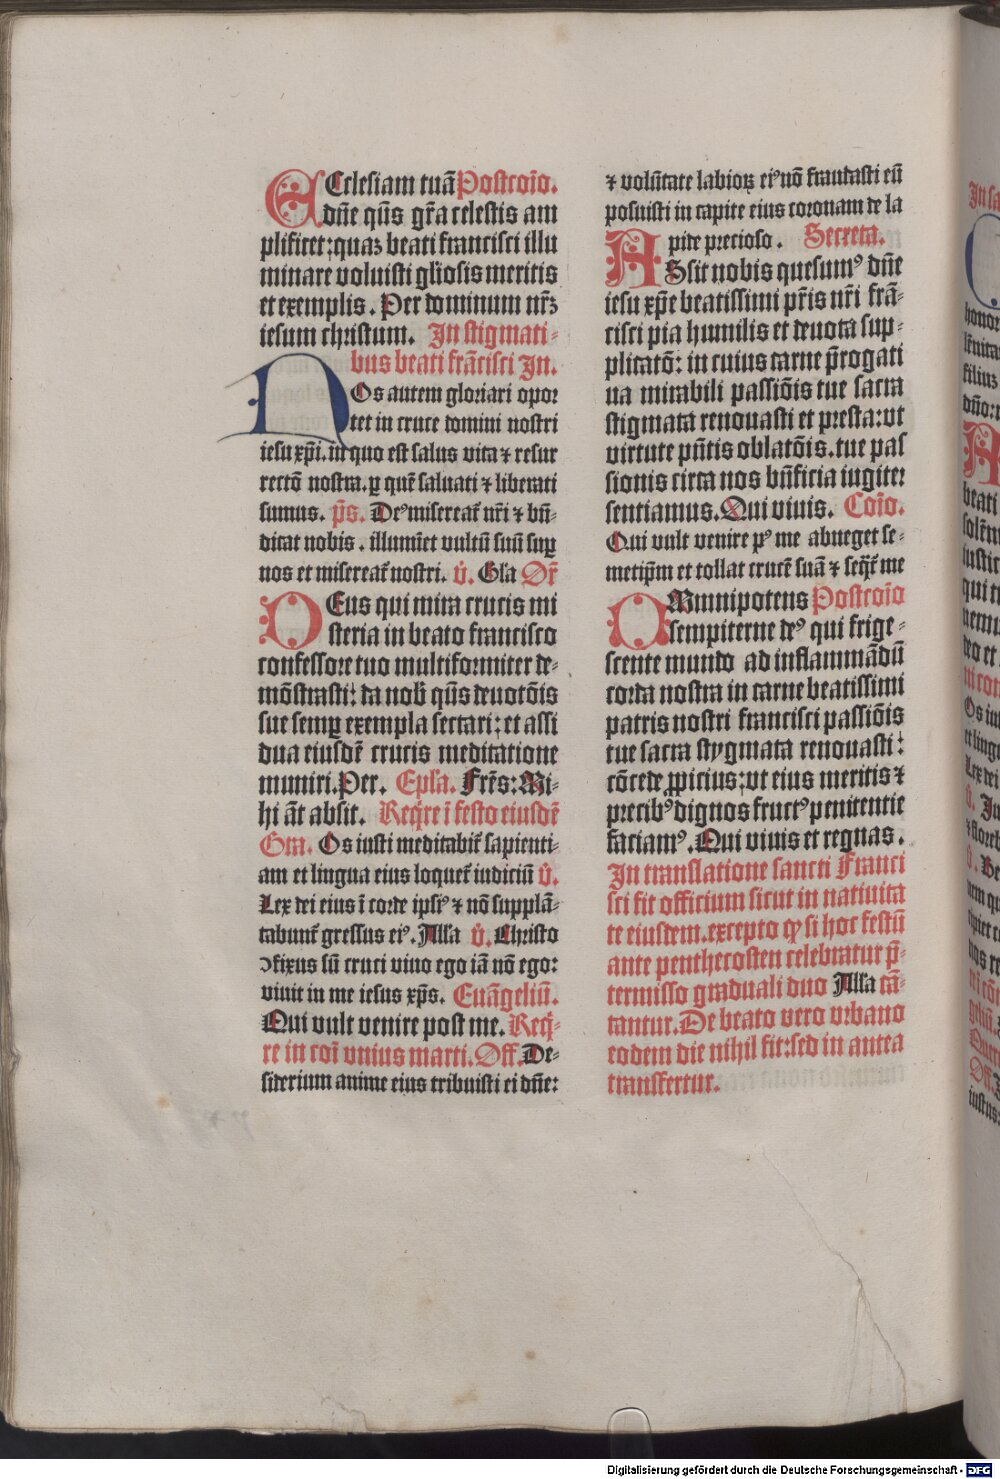 ECclesiam tuā Postcōio.
dn̄e qs̄ gr̄a celestis am
plificet: quaꝫ beati francisci illu
minare voluisti gl̄iosis meritis
et exemplis. Per dominum nr̄ꝫ
iesum christum. In stigmati-
bus beati frācisci In.
NOs autem gloriari opor
tet in cruce domini nostri
iesu xp̄i. in quo est salus vita ⁊ resur
rectō nostra. ꝑ quē saluati ⁊ liberati
sumus. p̄s. Deꝰ misereat̄ nr̄i ⁊ bn̄-
dicat nobis. illumīet vultū suū suꝑ
nos et misereat̄ nostri. v̄. Gla Or̄
DEus qui mira crucis mi
steria in beato francisco
confessore tuo multiformiter de-
mōstrasti: da nob̄ qs̄ deuotōis
sue semꝑ exempla sectari: et assi
dua eiusdē crucis meditatione
muniri. Per. Epl̄a. Frēs: Mi-
hi āt absit. Req̄re ī festo eiusdē
Gra. Os iusti meditabit̄ sapienti-
am et lingua eius loquet̄ iudiciū v̄.
Lex dei eius ī corde ipsiꝰ ⁊ nō supplā-
tabunt̄ gressus eiꝰ. Alla v̄. Christo
ↄfixus sū cruci viuo ego iā nō ego:
viuit in me iesus xp̄s. Euāgeliū.
Qui vult venire post me. Req̄-
re in cōi vnius marti. Off. De-
siderium anime eius tribuisti ei dn̄e:
⁊ volūtate labioꝝ eiꝰ nō fraudasti eū
posuisti in capite eius coronam de la
pide precioso. Secreta.
ASsit nobis quesumꝰ dn̄e
iesu xp̄e beatissimi pr̄is nr̄i frā-
cisci pia humilis et deuota sup-
plicatō: in cuius carne p̄rogati
ua mirabili passiōis tue sacra
stigmata renouasti et presta: vt
virtute pn̄tis oblatōis. tue pas
sionis circa nos bn̄ficia iugiter
sentiamus. Qui viuis. Cōio.
Qui vult venire pꝰ me abneget se-
metip̄m et tollat crucē suā ⁊ seq̄t̄ me
OMmnipotens Postcōio
sempiterne deꝰ qui frige-
scente mundo ad inflammādū
corda nostra in carne beatissimi
patris nostri francisci passiōis
tue sacra stygmata renouasti:
cōcede ꝓpicius: vt eius meritis ⁊
precibꝰ dignos fructꝰ penitentie
faciamꝰ. Qui viuis et regnas.
In translatione sancti Franci
sci fit officium sicut in natiuita
te eiusdem. excepto ꝙ si hoc festū
ante penthecosten celebratur p̄-
termisso graduali duo Alla cā-
tantur. De beato vero vrbano
eodem die nihil fit: sed in antea
transfertur.
Digitalisierung gefördert durch die Deutsche Forschungsgemeinschaft - DFG